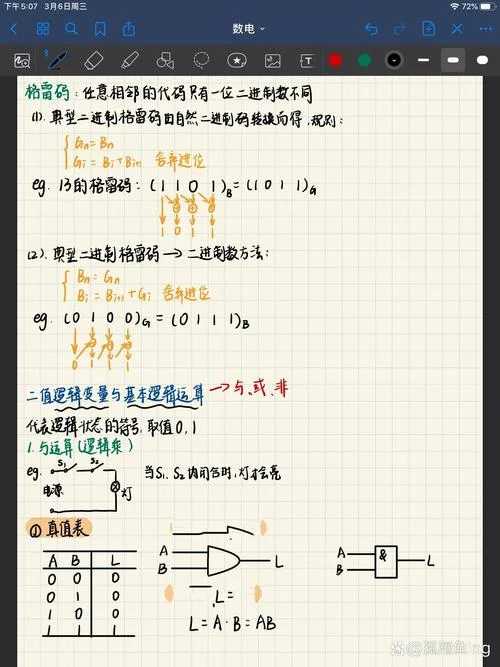 下午5:07 3月6日周三 72%
数电
格雷码：任意相邻的代码只有一位二进制数不同
(1). 典型二进制格雷码由自然二进制码转换而得，规则：
Gn = Bn
Gi = Bi + Bi+1 舍弃进位
eg. 13的格雷码：(1 1 0 1)B = (1 0 1 1)G
1 0 1 1
(2). 典型二进制格雷码 → 二进制数方法：
Bn = Gn
Bi = Bi+1 + Gi 舍弃进位
eg. (0 1 0 0)G = (0 1 1 1)B
0 1 1 1
二值逻辑变量与基本逻辑运算 → 与、或、非
代表逻辑状态的符号，取值0, 1
1. 与运算(逻辑乘)
eg. S1 S2 当S1、S2均闭合时，灯才会亮
电源 灯
① 真值表
A B L
0 0 0
0 1 0
1 0 0
1 1 1
A B L
L =
L = A · B = AB
A B & L